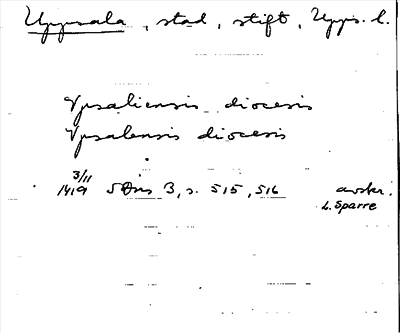 Uppsala, stad, stift, Upps. l.
Vpsaliensis diocesis
Vpsalensis diocesis
3/11
1419 SDns 3, s. 515, 516 avskr.
L. Sparre